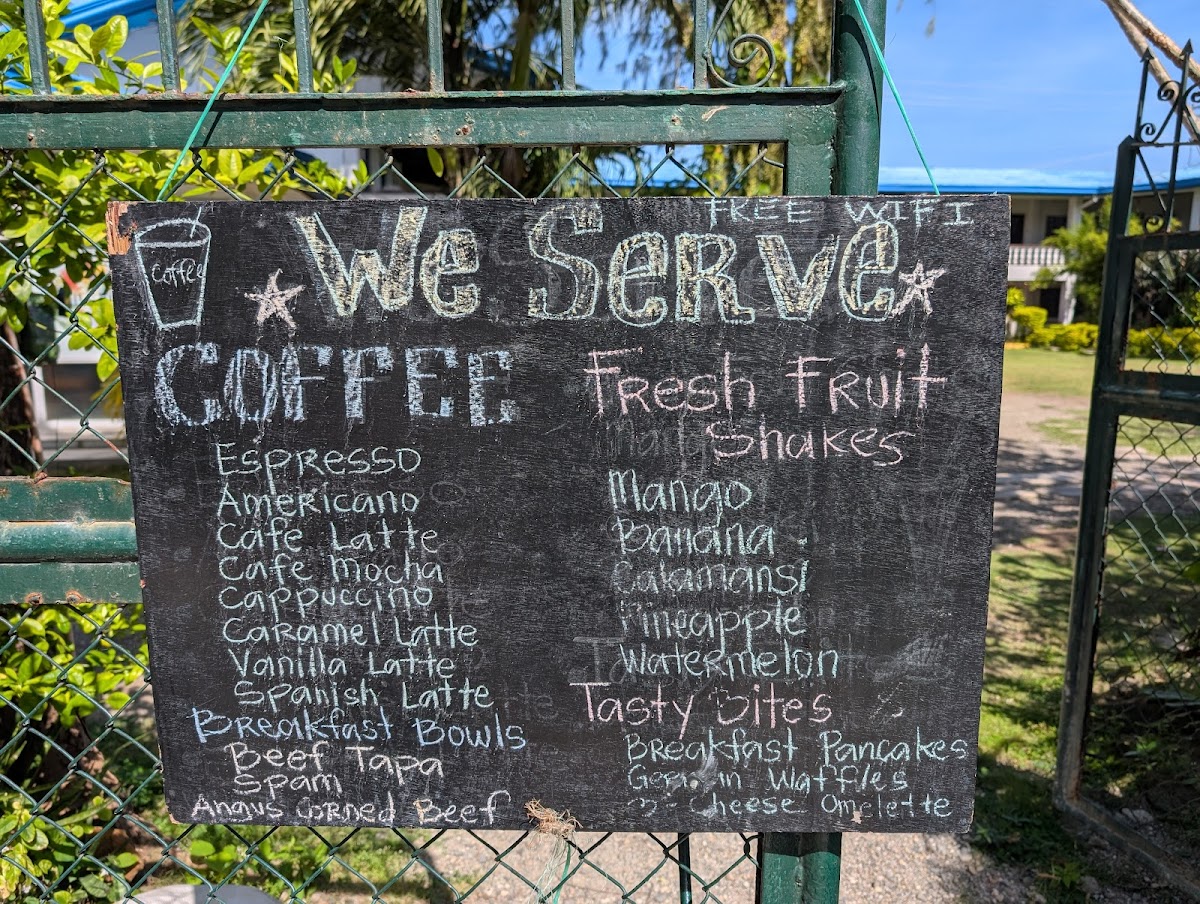 FREE WIFI
Coffee
We Serve
COFFEE
Espresso
Americano
Cafe Latte
Cafe Mocha
Cappuccino
Caramel Latte
Vanilla Latte
Spanish Latte
Breakfast Bowls
Beef Tapa
Spam
Angus Corned Beef
Fresh Fruit
Shakes
Mango
Banana
Calamansi
Pineapple
Watermelon
Tasty Bites
Breakfast Pancakes
Waffles
Cheese Omelette